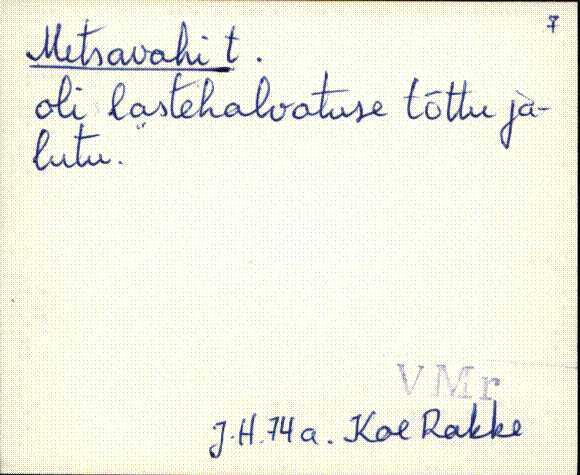 7
Metsavahi t.
oli lastehalvatuse tõttu ja-
lutu.
VMr
J.H. 74 a. Koe Rakke